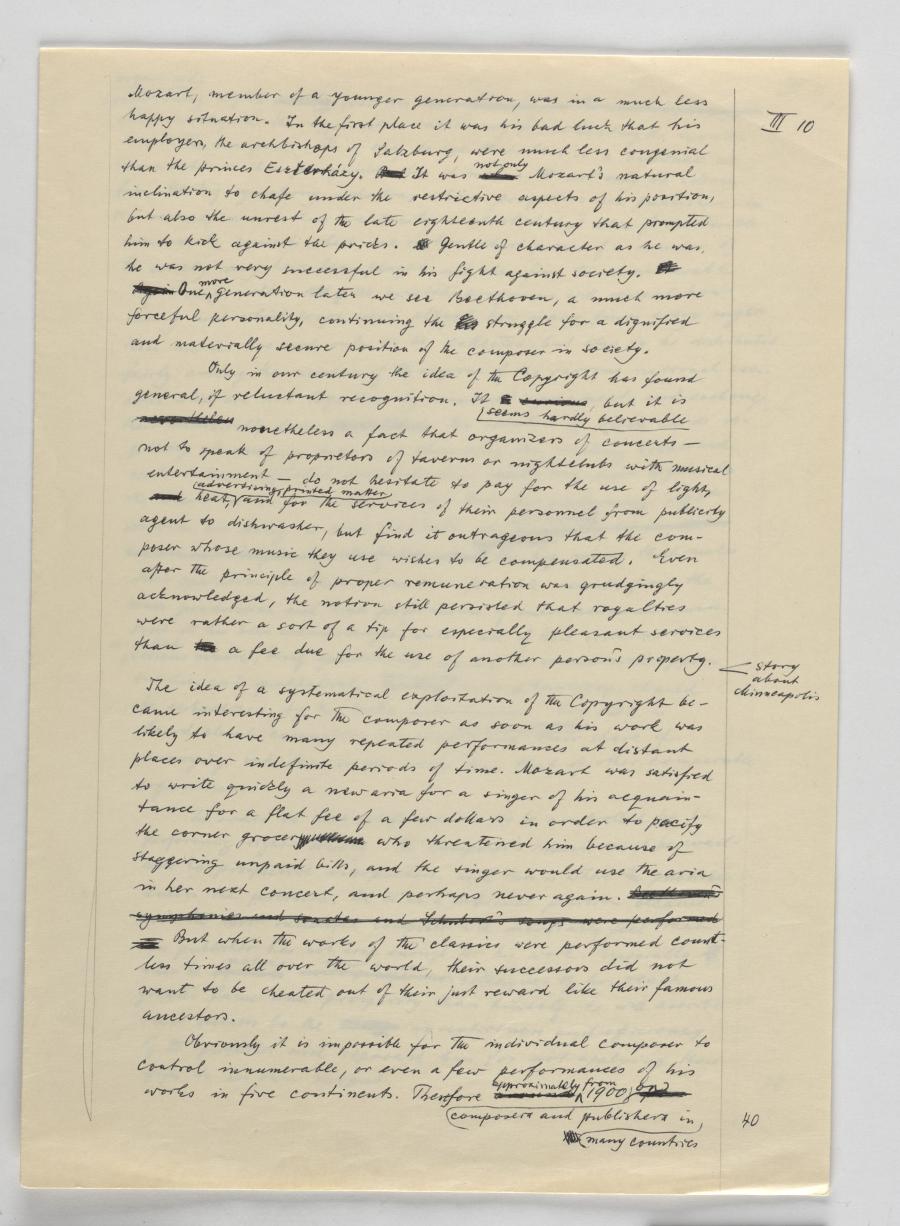 III 10
Mozart, member of a younger generation, was in a much less
happy situation. In the first place it was his bad luck that his
employers, the archbishops of Salzburg, were much less congenial
than the princes Eszterházy. But It was not only Mozart's natural
inclination to chafe under the restrictive aspects of his position,
but also the unrest of the late eighteenth century that prompted
him to kick against the pricks. Gentle of character as he was,
he was not very successful in his fight against society.
Again One more generation later we see Beethoven, a much more
forceful personality, continuing the struggle for a dignified
and materially secure position of the composer in society.
Only in our century the idea of the Copyright has found
general, if reluctant recognition. It is curious, but it is
seems hardly believable
nevertheless nonetheless a fact that organizers of concerts —
not to speak of proprietors of taverns or nightclubs with musical
entertainment — do not hesitate to pay for the use of light,
advertising, printed matter
and heat, and for the services of their personnel from publicity
agent to dishwasher, but find it outrageous that the com-
poser whose music they use wishes to be compensated. Even
after the principle of proper remuneration was grudgingly
acknowledged, the notion still persisted that royalties
were rather a sort of a tip for especially pleasant services
than a fee due for the use of another person's property.
story
about
Minneapolis
The idea of a systematical exploitation of the Copyright be-
came interesting for the composer as soon as his work was
likely to have many repeated performances at distant
places over indefinite periods of time. Mozart was satisfied
to write quickly a new aria for a singer of his acquain-
tance for a flat fee of a few dollars in order to pacify
the corner grocer who threatened him because of
staggering unpaid bills, and the singer would use the aria
in her next concert, and perhaps never again. Beethoven's
symphonies and sonatas and Schubert's songs were performed
But when the works of the classics were performed count-
less times all over the world, their successors did not
want to be cheated out of their just reward like their famous
ancestors.
Obviously it is impossible for the individual composer to
control innumerable, or even a few performances of his
approximately from
works in five continents. Therefore 1900
composers and publishers in
many countries
40